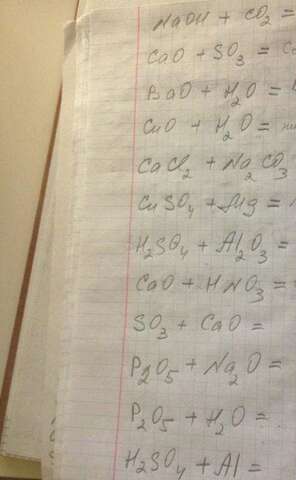 NaOH + CO₂ =
CaO + SO₃ = C
BaO + H₂O =
CuO + H₂O =
CaCl₂ + Na₂CO₃
CuSO₄ + Mg =
H₂SO₄ + Al₂O₃ =
CaO + HNO₃ =
SO₃ + CaO =
P₂O₅ + Na₂O =
P₂O₅ + H₂O =
H₂SO₄ + Al =